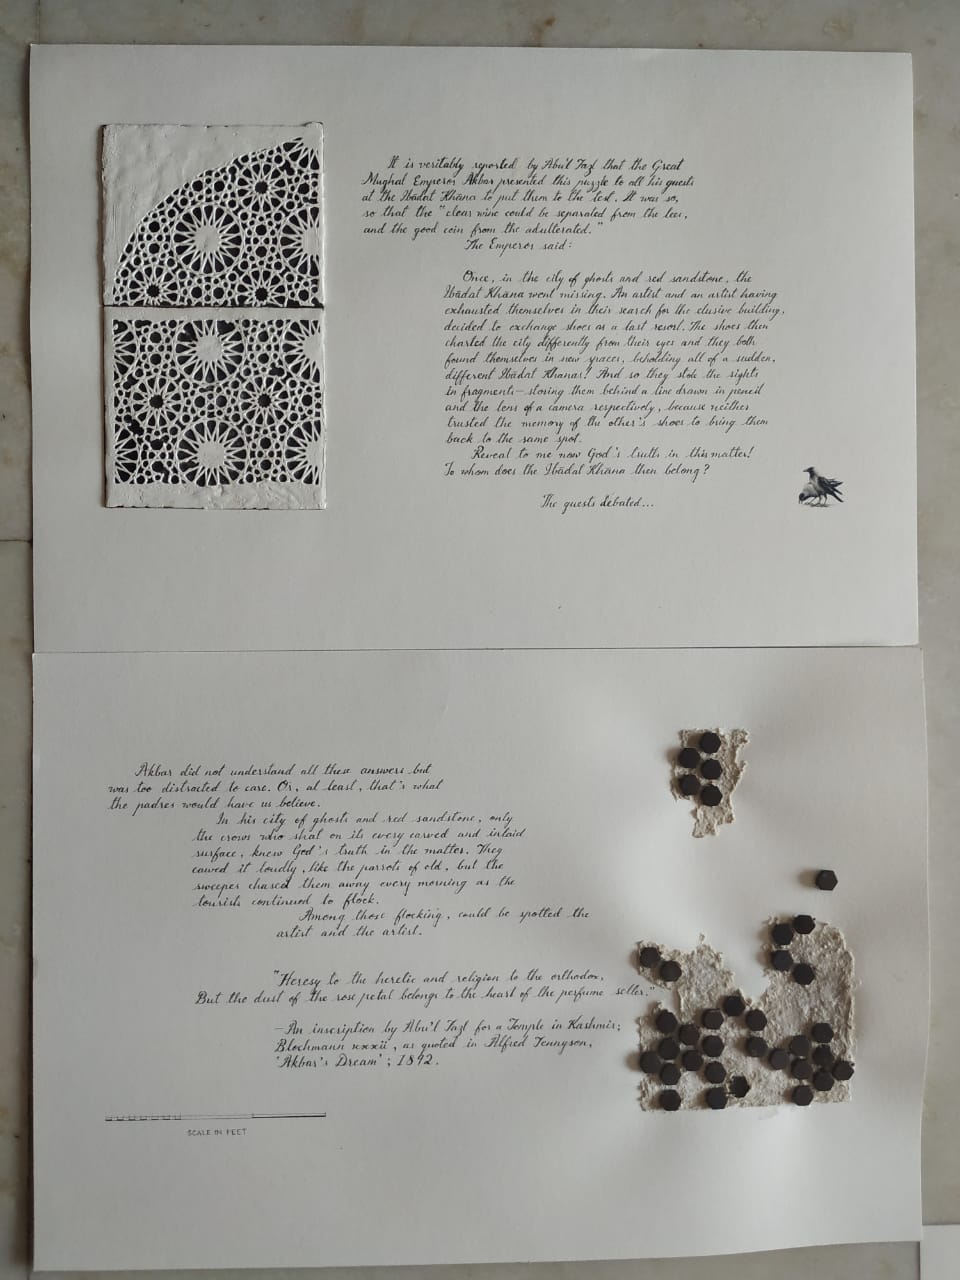 It is veritably reported by Abu'l Fazl that the Great
Mughal Emperor Akbar presented this puzzle to all his guests
at the Ibādat Khāna to put them to the test. It was so,
so that the "clear wine could be separated from the lees,
and the good coin from the adulterated."
The Emperor said:
Once, in the city of ghosts and red sandstone, the
Ibādat Khāna went missing. An artist and an artist having
exhausted themselves in their search for the elusive building,
decided to exchange shoes as a last resort. The shoes then
charted the city differently from their eyes and they both
found themselves in new spaces, beholding all of a sudden,
different Ibādat Khānas! And so they stole the sights
in fragments—storing them behind a line drawn in pencil
and the lens of a camera respectively, because neither
trusted the memory of the other's shoes to bring them
back to the same spot.
Reveal to me now God's truth in this matter!
To whom does the Ibādat Khāna then belong?
The guests debated...
Akbar did not understand all these answers but
was too distracted to care. Or, at least, that's what
the padres would have us believe.
In his city of ghosts and red sandstone, only
the crows who shat on its every carved and inlaid
surface, knew God's truth in the matter. They
cawed it loudly, like the parrots of old, but the
sweeper chased them away every morning as the
tourists continued to flock.
Among those flocking, could be spotted the
artist and the artist.
"Heresy to the heretic and religion to the orthodox,
But the dust of the rose petal belongs to the heart of the perfume seller."
—An inscription by Abu'l Fazl for a Temple in Kashmir;
Blochmann xxxii, as quoted in Alfred Tennyson,
'Akbar's Dream'; 1892.
SCALE IN FEET